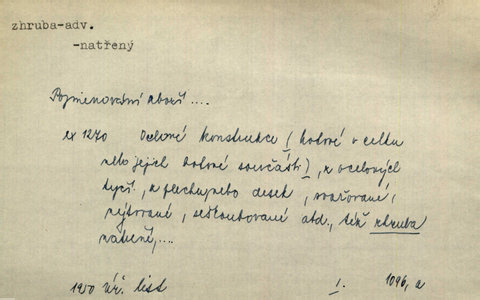 zhruba-adv.
-natřený
Pojmenování zboží ....
ex 1270 Ocelové konstrukce ( hotové v celku
nebo jejich hotové součásti ), z ocelových
tyčí, z plechu nebo desek, svařované,
nýtované, sešroubované atd., též zhruba
natřené,...
1950 Úř. list I. 1096, a